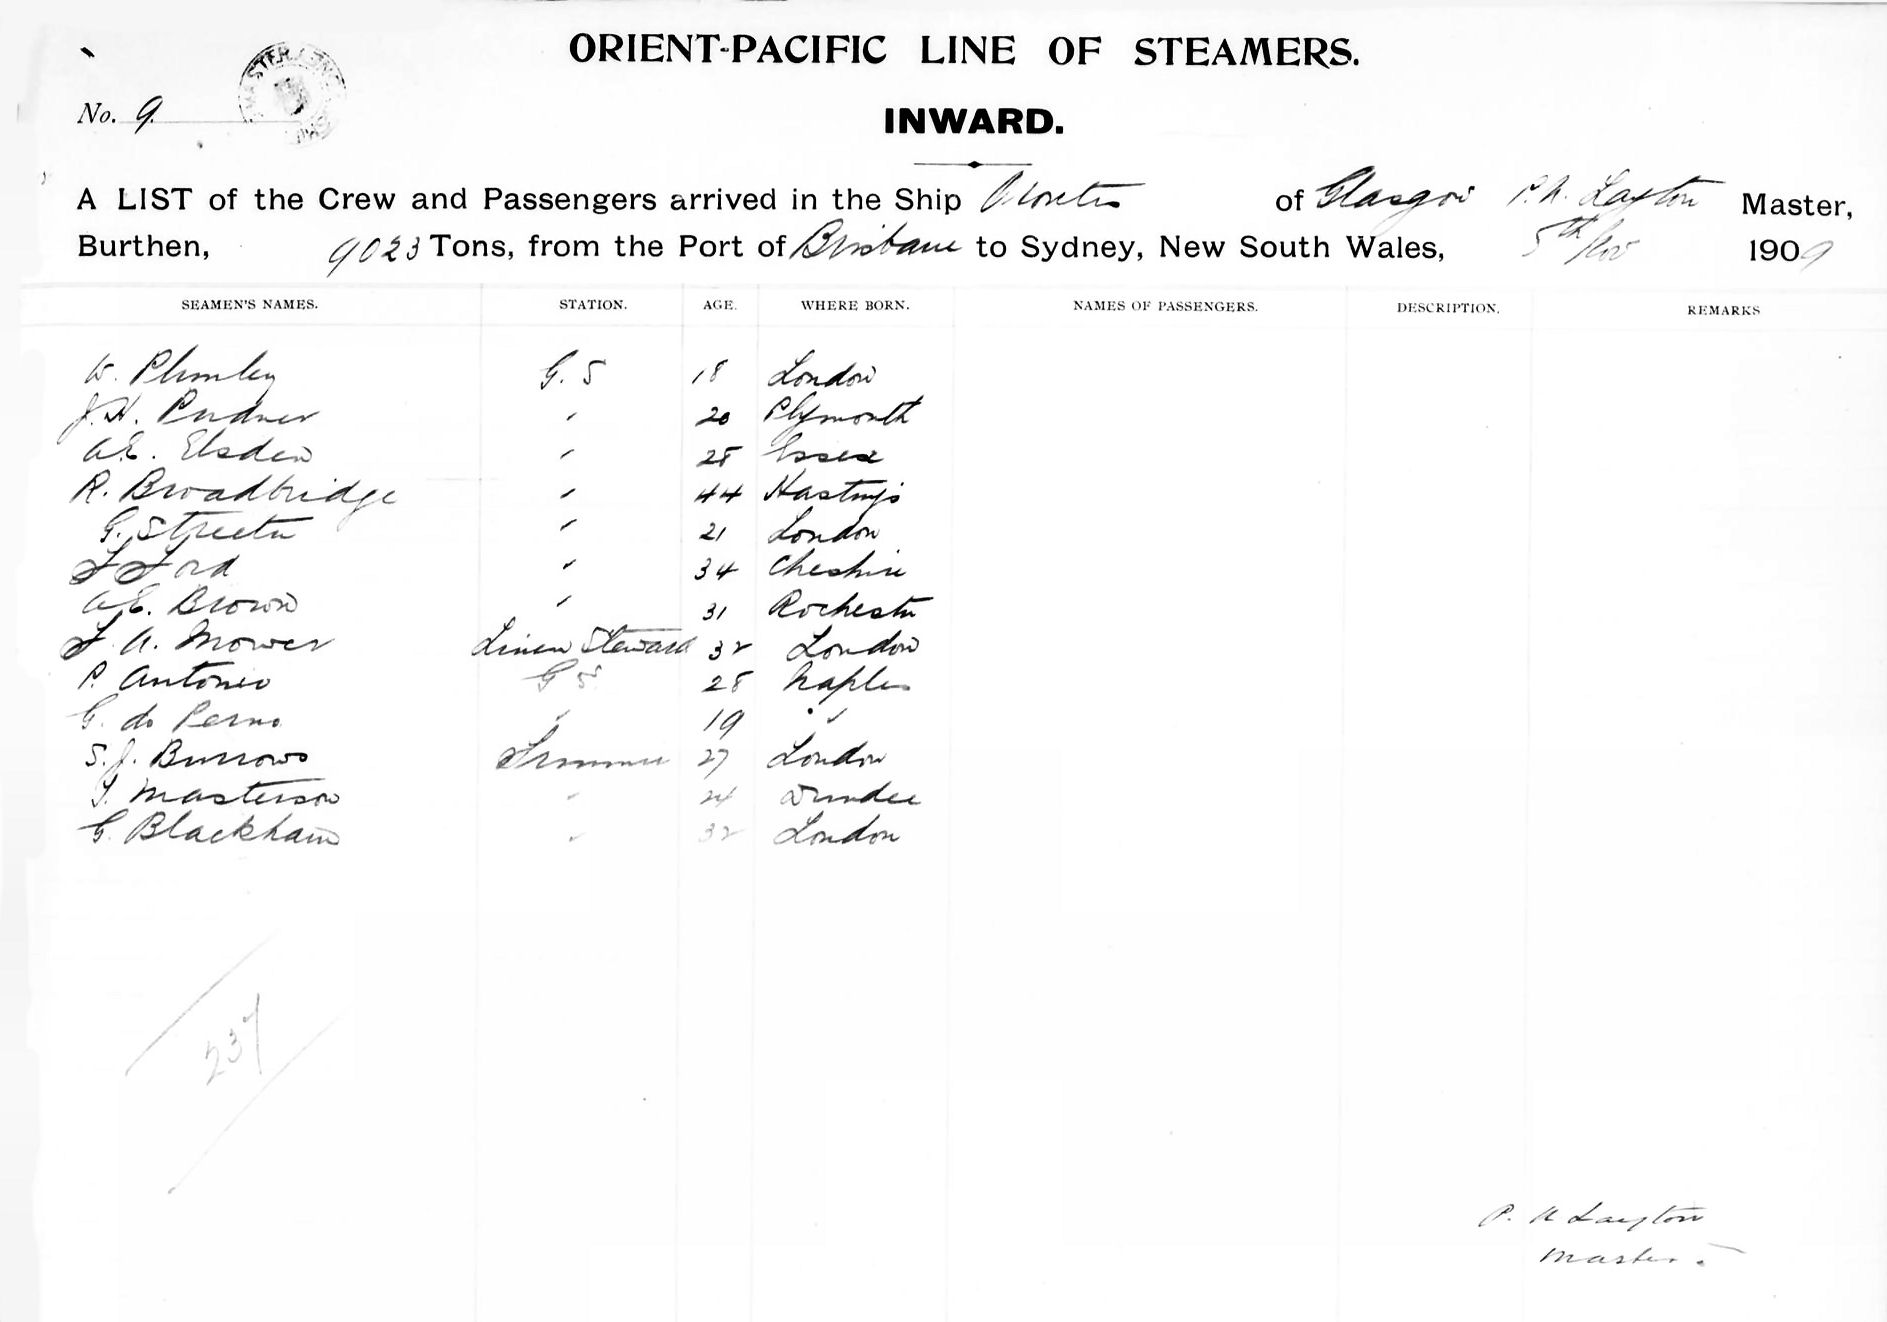 ORIENT-PACIFIC LINE OF STEAMERS.
No. 9
INWARD.
A LIST of the Crew and Passengers arrived in the Ship of Glasgow Layton Master,
Burthen, 9023 Tons, from the Port of Brisbane to Sydney, New South Wales, 5th Nov 1909
SEAMEN'S NAMES. STATION. AGE. WHERE BORN. NAMES OF PASSENGERS. DESCRIPTION. REMARKS
W. Plumley G. S 18 London
J. H. Pudner " 20 Plymouth
A. E. Elsden " 28 Essex
R. Broadbridge " 44 Hastings
G. Streeter " 21 London
F Ford " 34 Cheshire
A E. Brown " 31 Rochester
F. A. Mower Linen Steward 32 London
P. Antonio G S 28 Naples
G. do Perno " 19 "
S. J. Burrows 27 London
Masterson " 24 Dundee
G. Blackham " 32 London
237
Layton
Master.